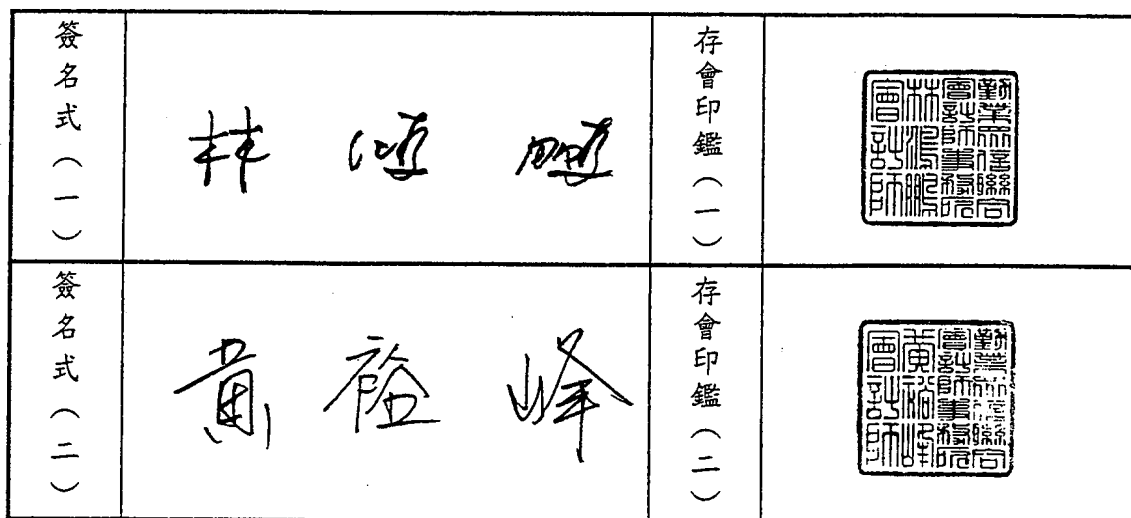 簽名式（一）
林鴻鵬
存會印鑑（一）
勤業眾信聯合
會計師事務所
林鴻鵬
會計師
簽名式（二）
黃裕峰
存會印鑑（二）
勤業眾信聯合
會計師事務所
黃裕峰
會計師